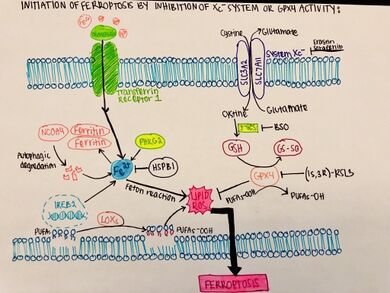 INITIATION OF FERROPTOSIS BY INHIBITION OF Xc⁻ SYSTEM OR GPX4 ACTIVITY:
Cystine
Glutamate
System Xc⁻
Erastin
Sorafenib
SLC3A2
SLC7A11
Transferrin
Receptor 1
Cystine
Glutamate
BSO
NCOA4
Ferritin
Ferritin
PHKG2
GSH
GS-SG
Autophagic
degradation
Fe²⁺
HSPB1
GPX4
(1S,3R)-RSL3
Feton reaction
IREB2
LIPID
ROS
PUFAs-OOH
PUFAs-OH
LOXs
PUFAs
PUFAs-OOH
FERROPTOSIS